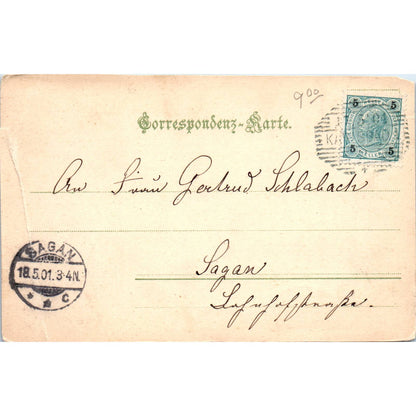 9 00
Correspondenz-Karte.
5 5
5 5
An Frau Gertrud Schlabach
SAGAN
18.5.01.3-4N.
* * C
Sagan
Bahnhofstraße.